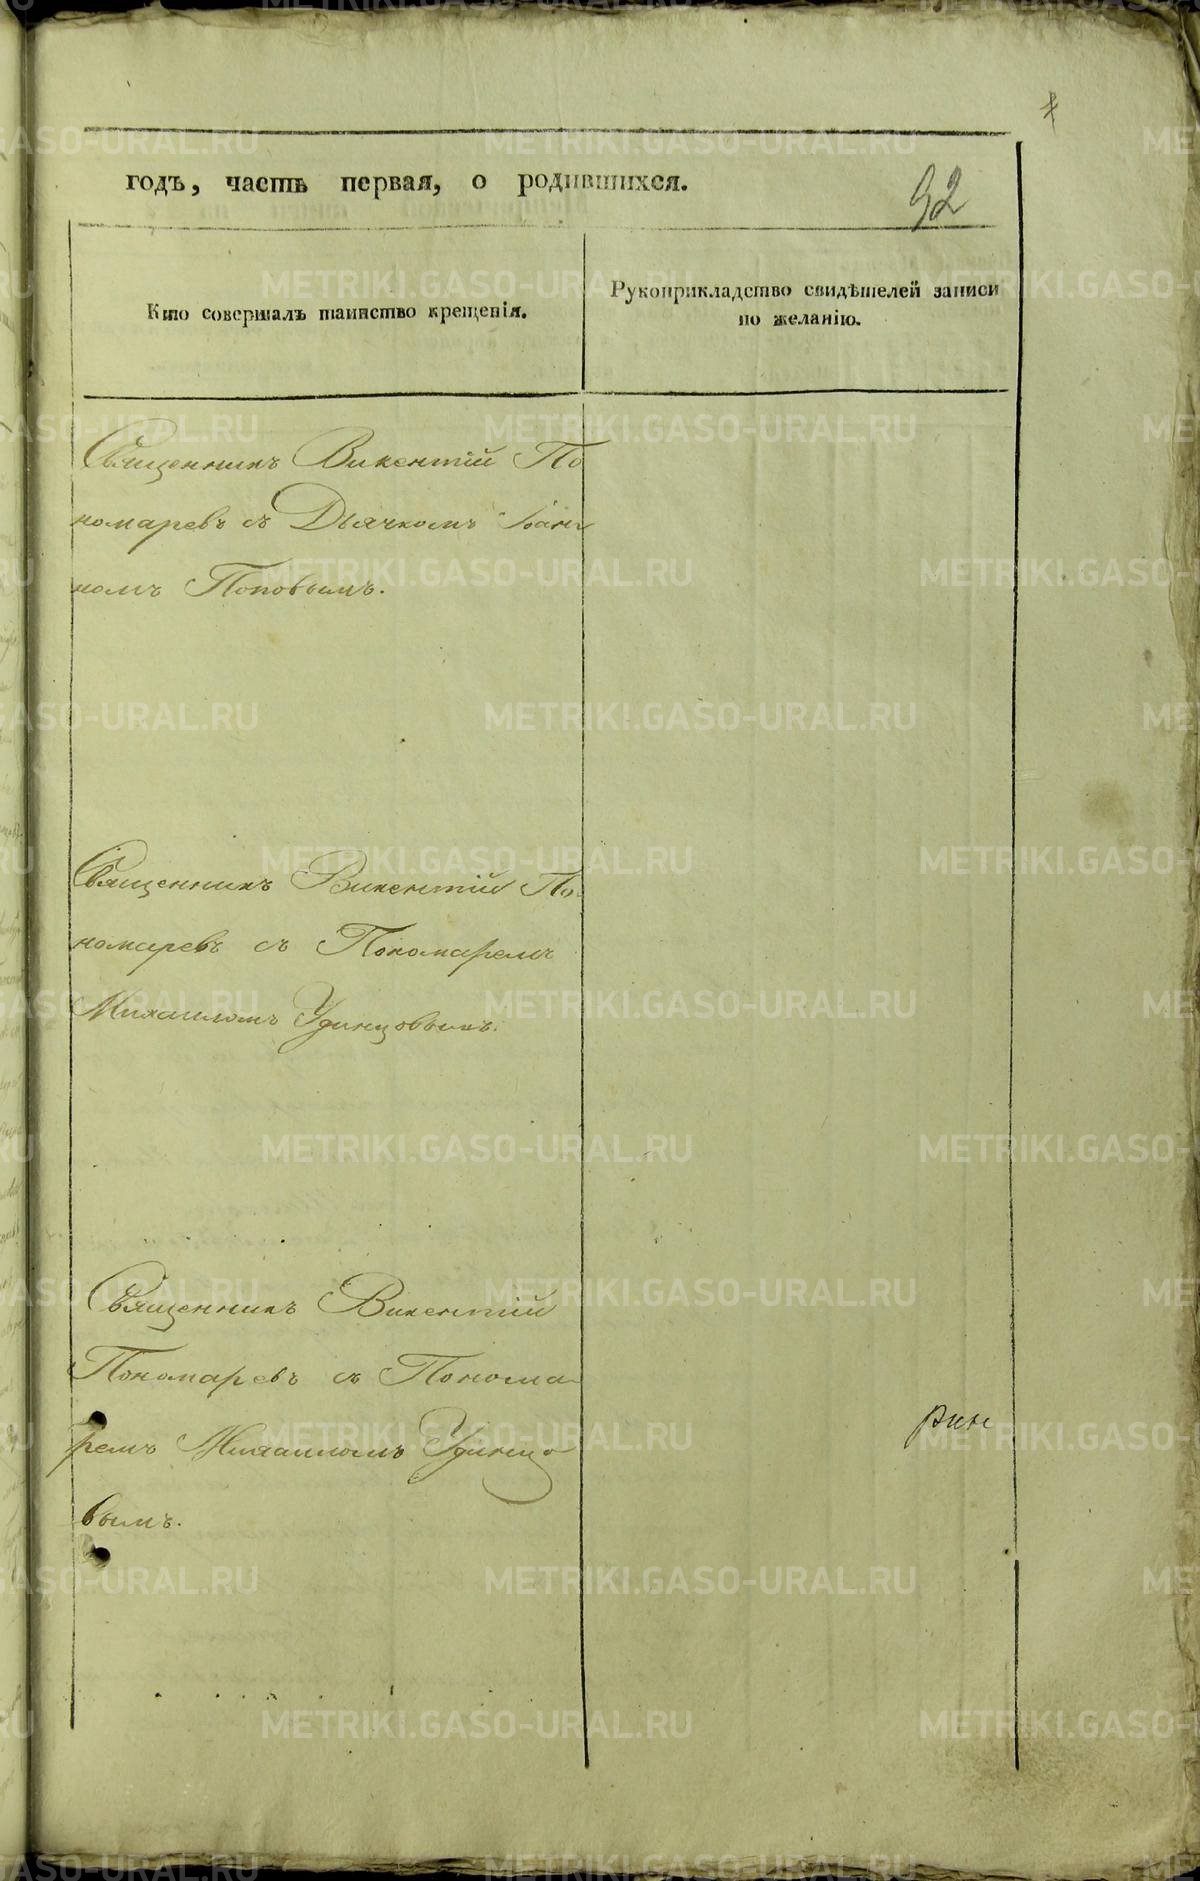 годъ, часть первая, о родившихся.
92
Кто совершалъ таинство крещенія.
Рукоприкладство свидѣтелей записи
по желанію.
Священникъ Викентій По
номаревъ съ Дьячкомъ Іоан
номъ Поповымъ.
Священникъ Викентій По
номаревъ съ Пономаремъ
Михаиломъ Удинцовымъ.
Священникъ Викентій
Пономаревъ съ Понома
ремъ Михаиломъ Удинцо
вымъ.
METRIKI.GASO-URAL.RU